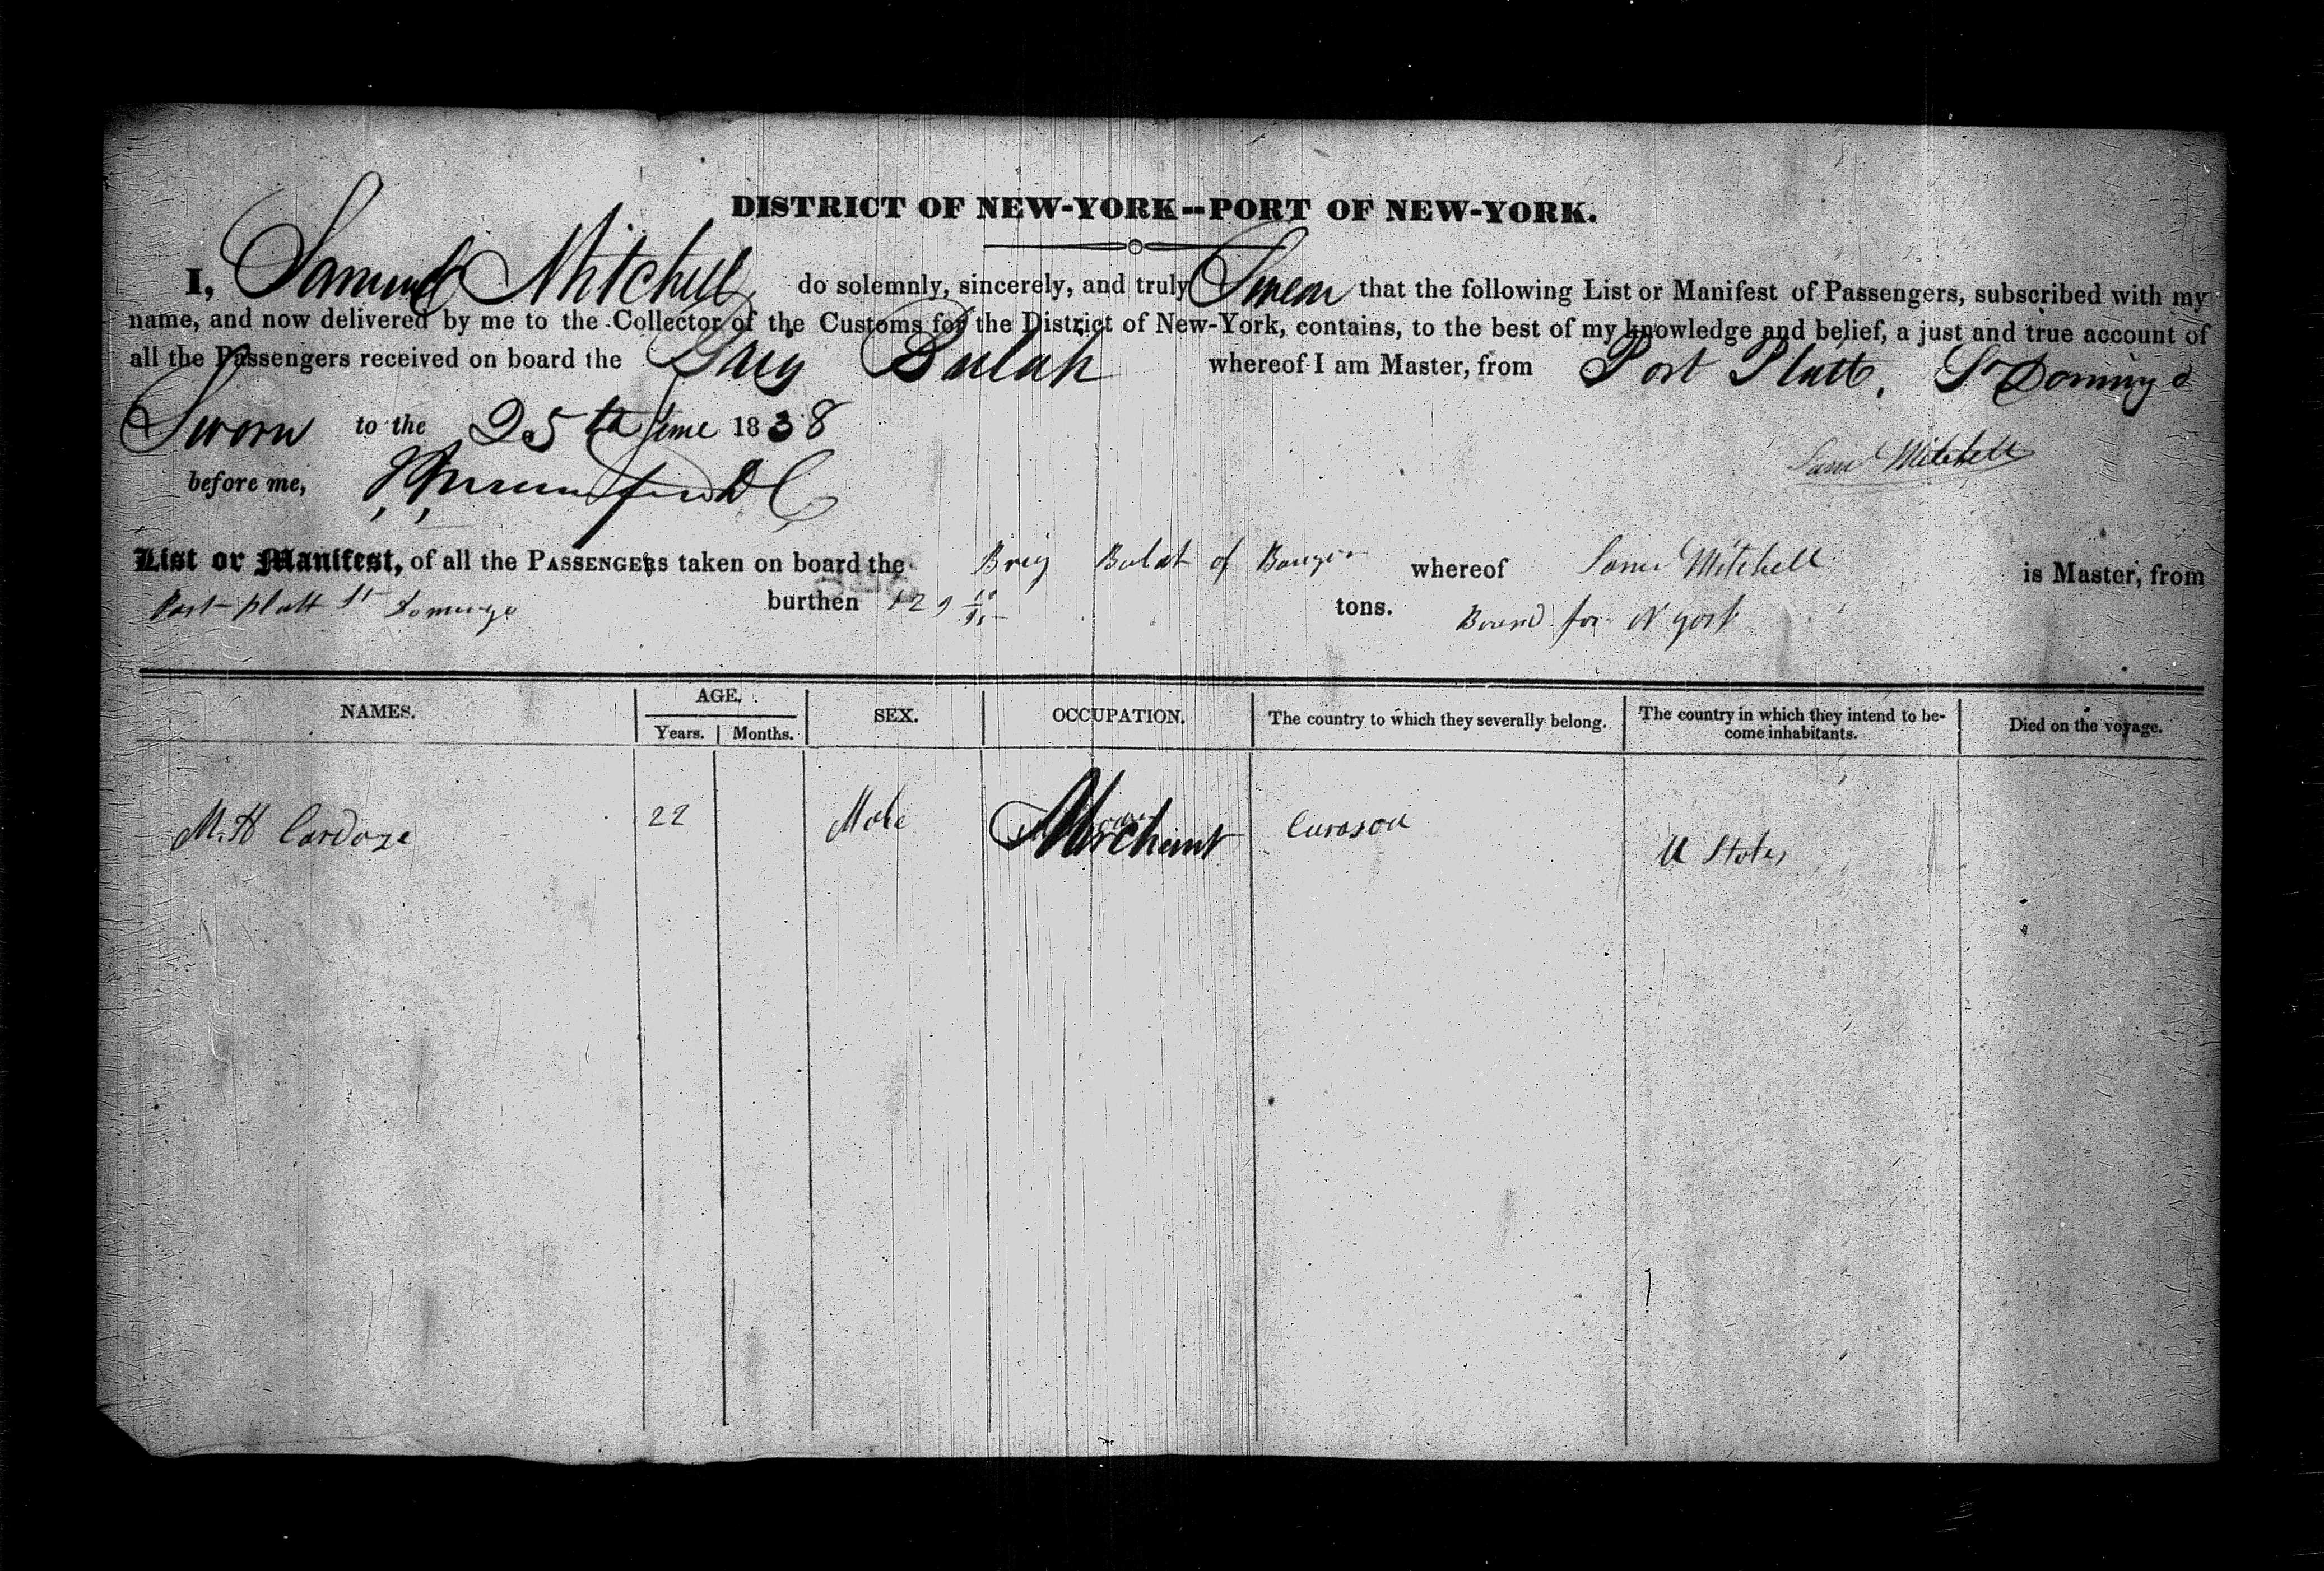 DISTRICT OF NEW-YORK--PORT OF NEW-YORK.
I, Samuel Mitchell do solemnly, sincerely, and truly Swear that the following List or Manifest of Passengers, subscribed with my
name, and now delivered by me to the Collector of the Customs for the District of New-York, contains, to the best of my knowledge and belief, a just and true account of
all the Passengers received on board the Brig Bulah whereof I am Master, from Port Platt, St Domingo
Sworn to the 25th June 1838
Saml Mitchell
before me,
List or Manifest, of all the PASSENGERS taken on board the Brig Bulah of Bangor whereof Saml Mitchell is Master, from
Port Platt St Domingo burthen 129 tons. Bound for N York
NAMES. AGE. Years. Months. SEX. OCCUPATION. The country to which they severally belong. The country in which they intend to be-come inhabitants. Died on the voyage.
M. H Cardoze 22 Male Merchant Curasou U States